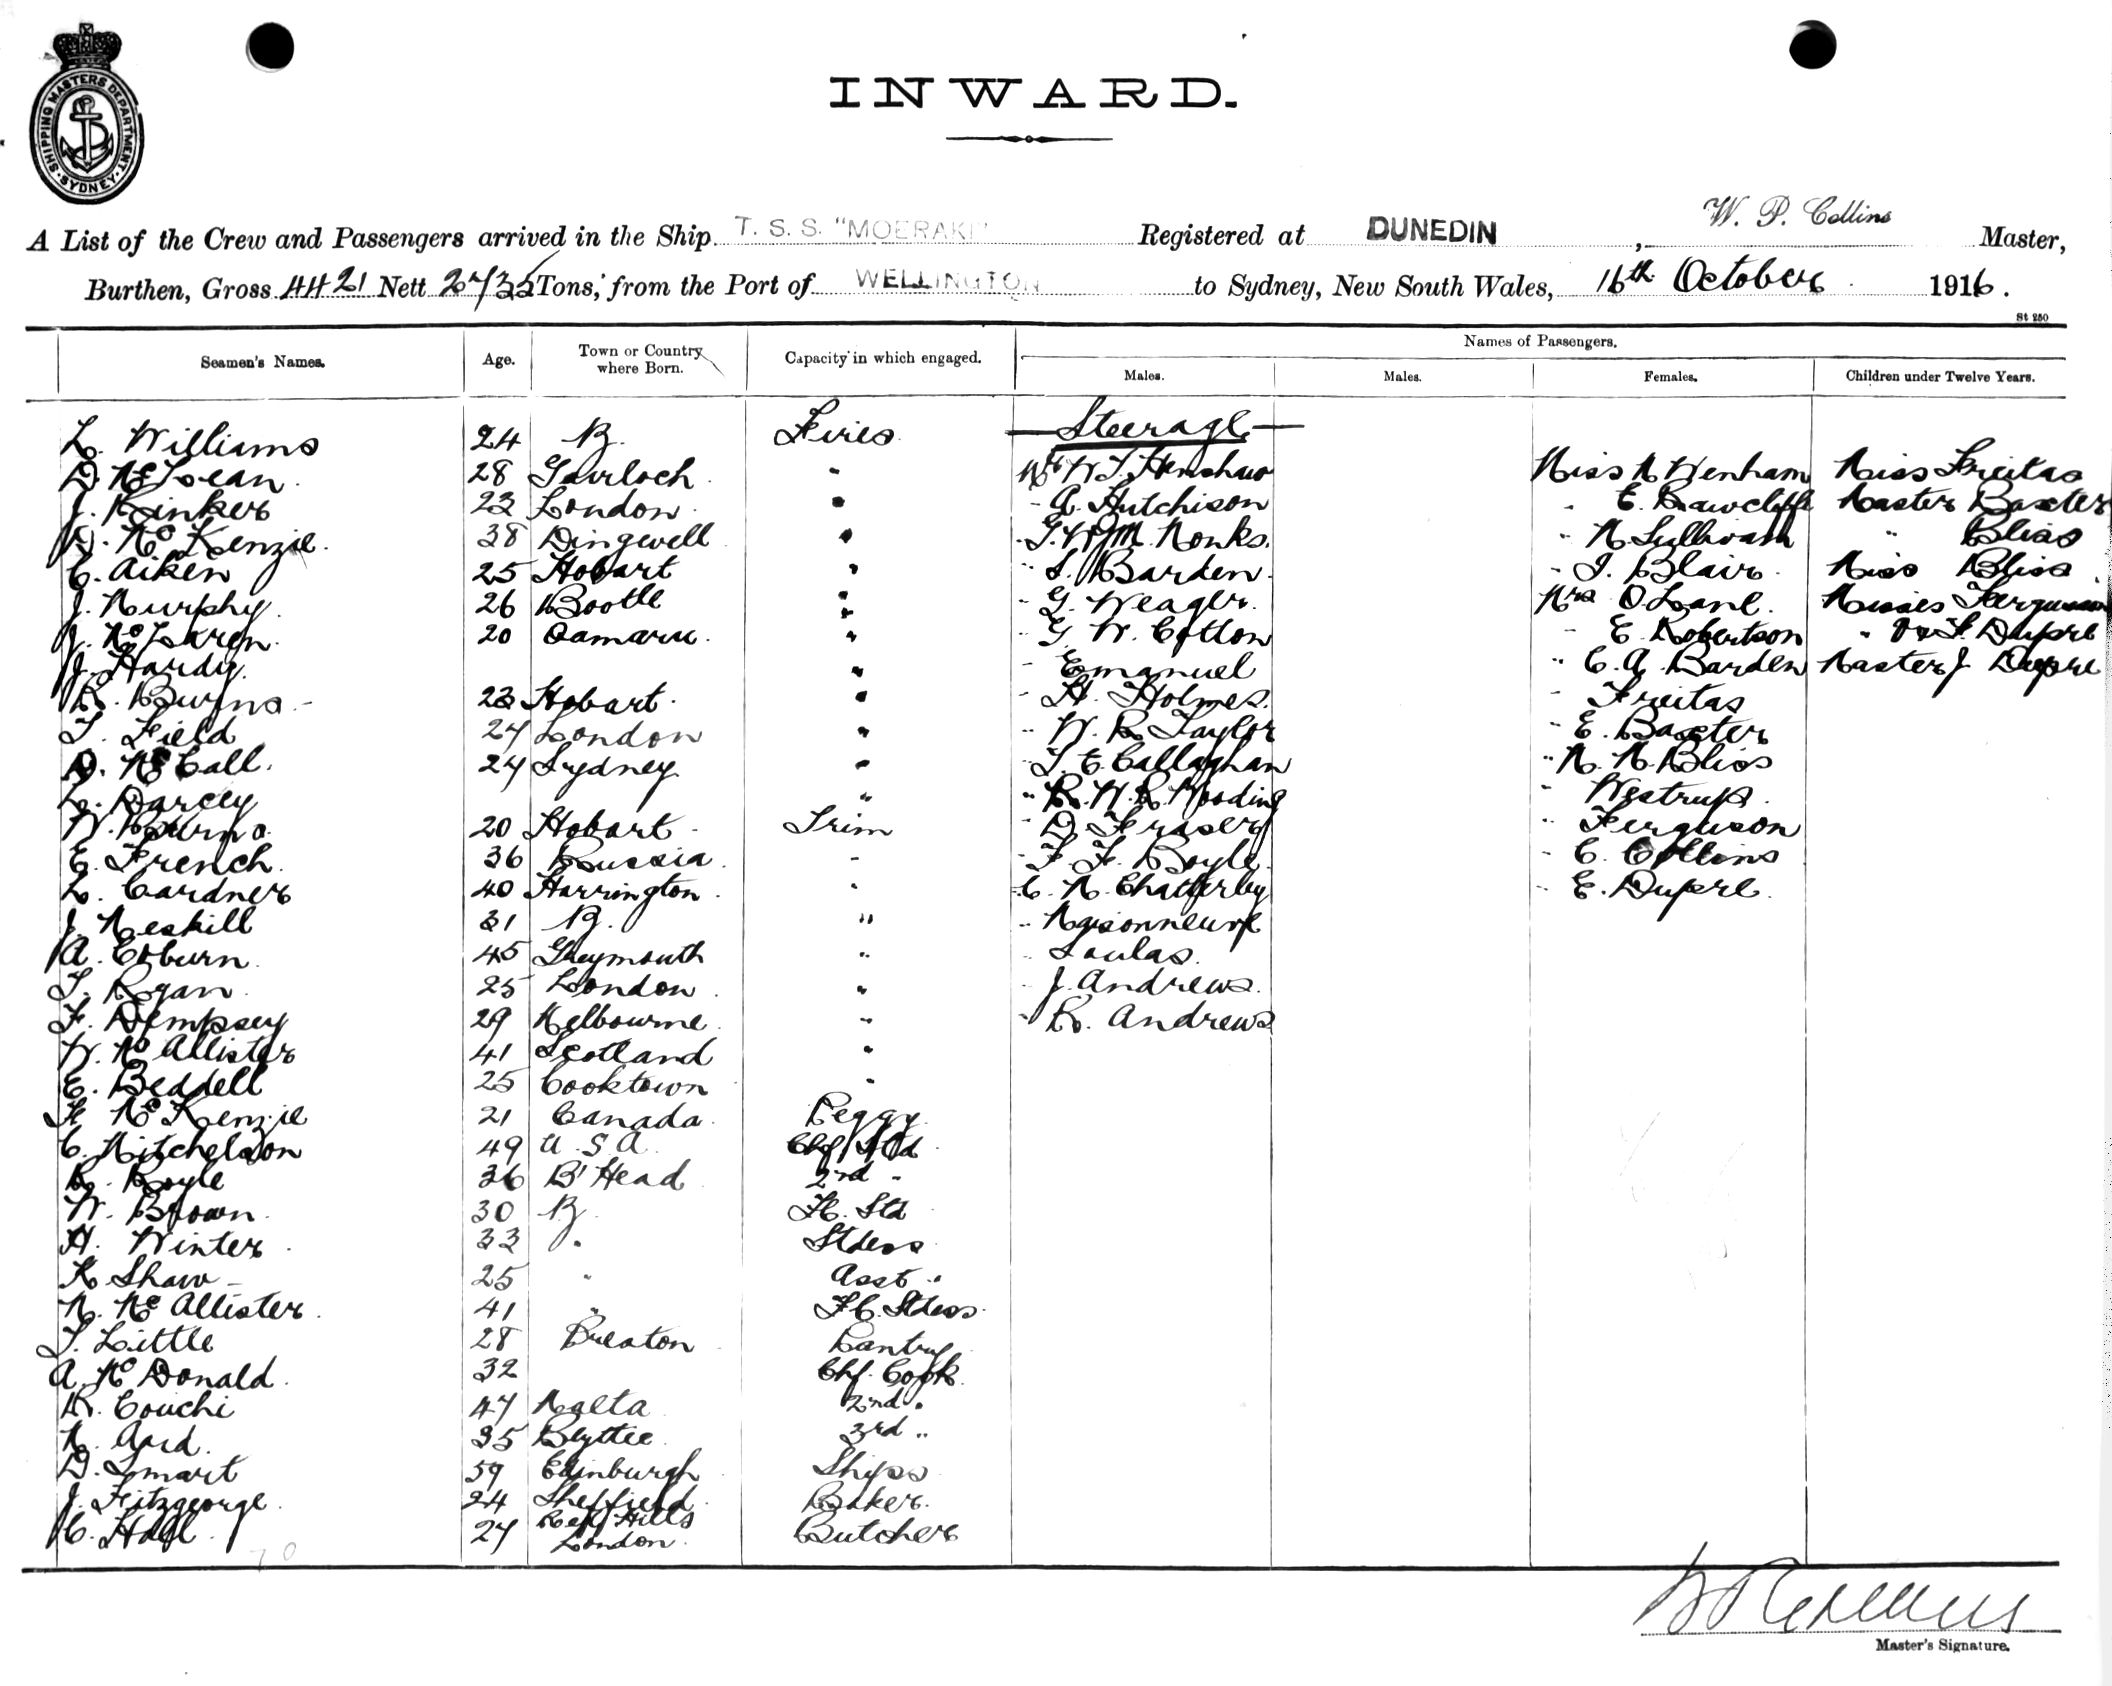 SHIPPING MASTERS DEPARTMENT · SYDNEY ·
INWARD.
A List of the Crew and Passengers arrived in the Ship T. S. S. "MOERAKI" Registered at DUNEDIN, W. P. Collins Master,
Burthen, Gross 4421 Nett 2735 Tons, from the Port of WELLINGTON to Sydney, New South Wales, 16th October 1916.
St 250
Seamen's Names. Age. Town or Country where Born. Capacity in which engaged. Names of Passengers.
Males. Males. Females. Children under Twelve Years.
L. Williams 24 B. Fires Steerage
D. McLean 28 Gairloch " Mr W. J. Henshaw Miss M Wenham Miss Freitas
J. Rinker 23 London " - A. Hutchison " E. Rawcliffe Master Baxter
D. McKenzie 38 Dingwell " " Monks " M. Sullivan " Bliss
C. Aiken 25 Hobart " " S. Barden " J. Blair Miss Bliss
J. Murphy 26 Bootle " " G. Weager Mrs O'Lane Misses Ferguson
J. McLaren 20 Oamaru " " G. W. Cotton - E. Robertson " Dupre
J. Hardy " - Emanuel " C. A. Barden Master J. Dupre
R. Burns - 23 Hobart " - H. Holmes - Freitas
T. Field 24 London " " W. R. Taylor - E. Baxter
D. McCall 24 Sydney " " T. E. Callaghan " M. M. Bliss
L. Darcey " " R. W. R. Wooding - Westrup
W. Burns 20 Hobart Trim " D. Fraser " Ferguson
E. French 36 Russia - - F. F. Boyle - C. Collins
L. Cardner 40 Harrington " C. M. Chatterley " E. Dupre
J. Meskill 31 B. " " Maisonneuve
A. Coburn 45 Greymouth " - Loulas
T. Ryan 25 London " - J. Andrews
F. Dempsey 29 Melbourne " - R. Andrews
W. McAllister 41 Scotland "
E. Beddell 25 Cooktown "
McKenzie 21 Canada Peggy
C. Mitchelson 49 U.S.A. Chf Std
R. Boyle 36 B'Head 2nd "
W. Brown 30 B. F.C. Std
H. Winter 33 " Stdess
K. Shaw - 25 " Asst "
M. McAllister 41 " F.C. Stdess
T. Little 28 Preston Pantry
A. McDonald 32 Chf. Cook
R. Couchi 47 Malta 2nd "
35 3rd "
D. Smart 59 Edinburgh Ships
J. Fitzgeorge 24 Sheffield Baker
C. Hall 24 London Butcher
Master's Signature.